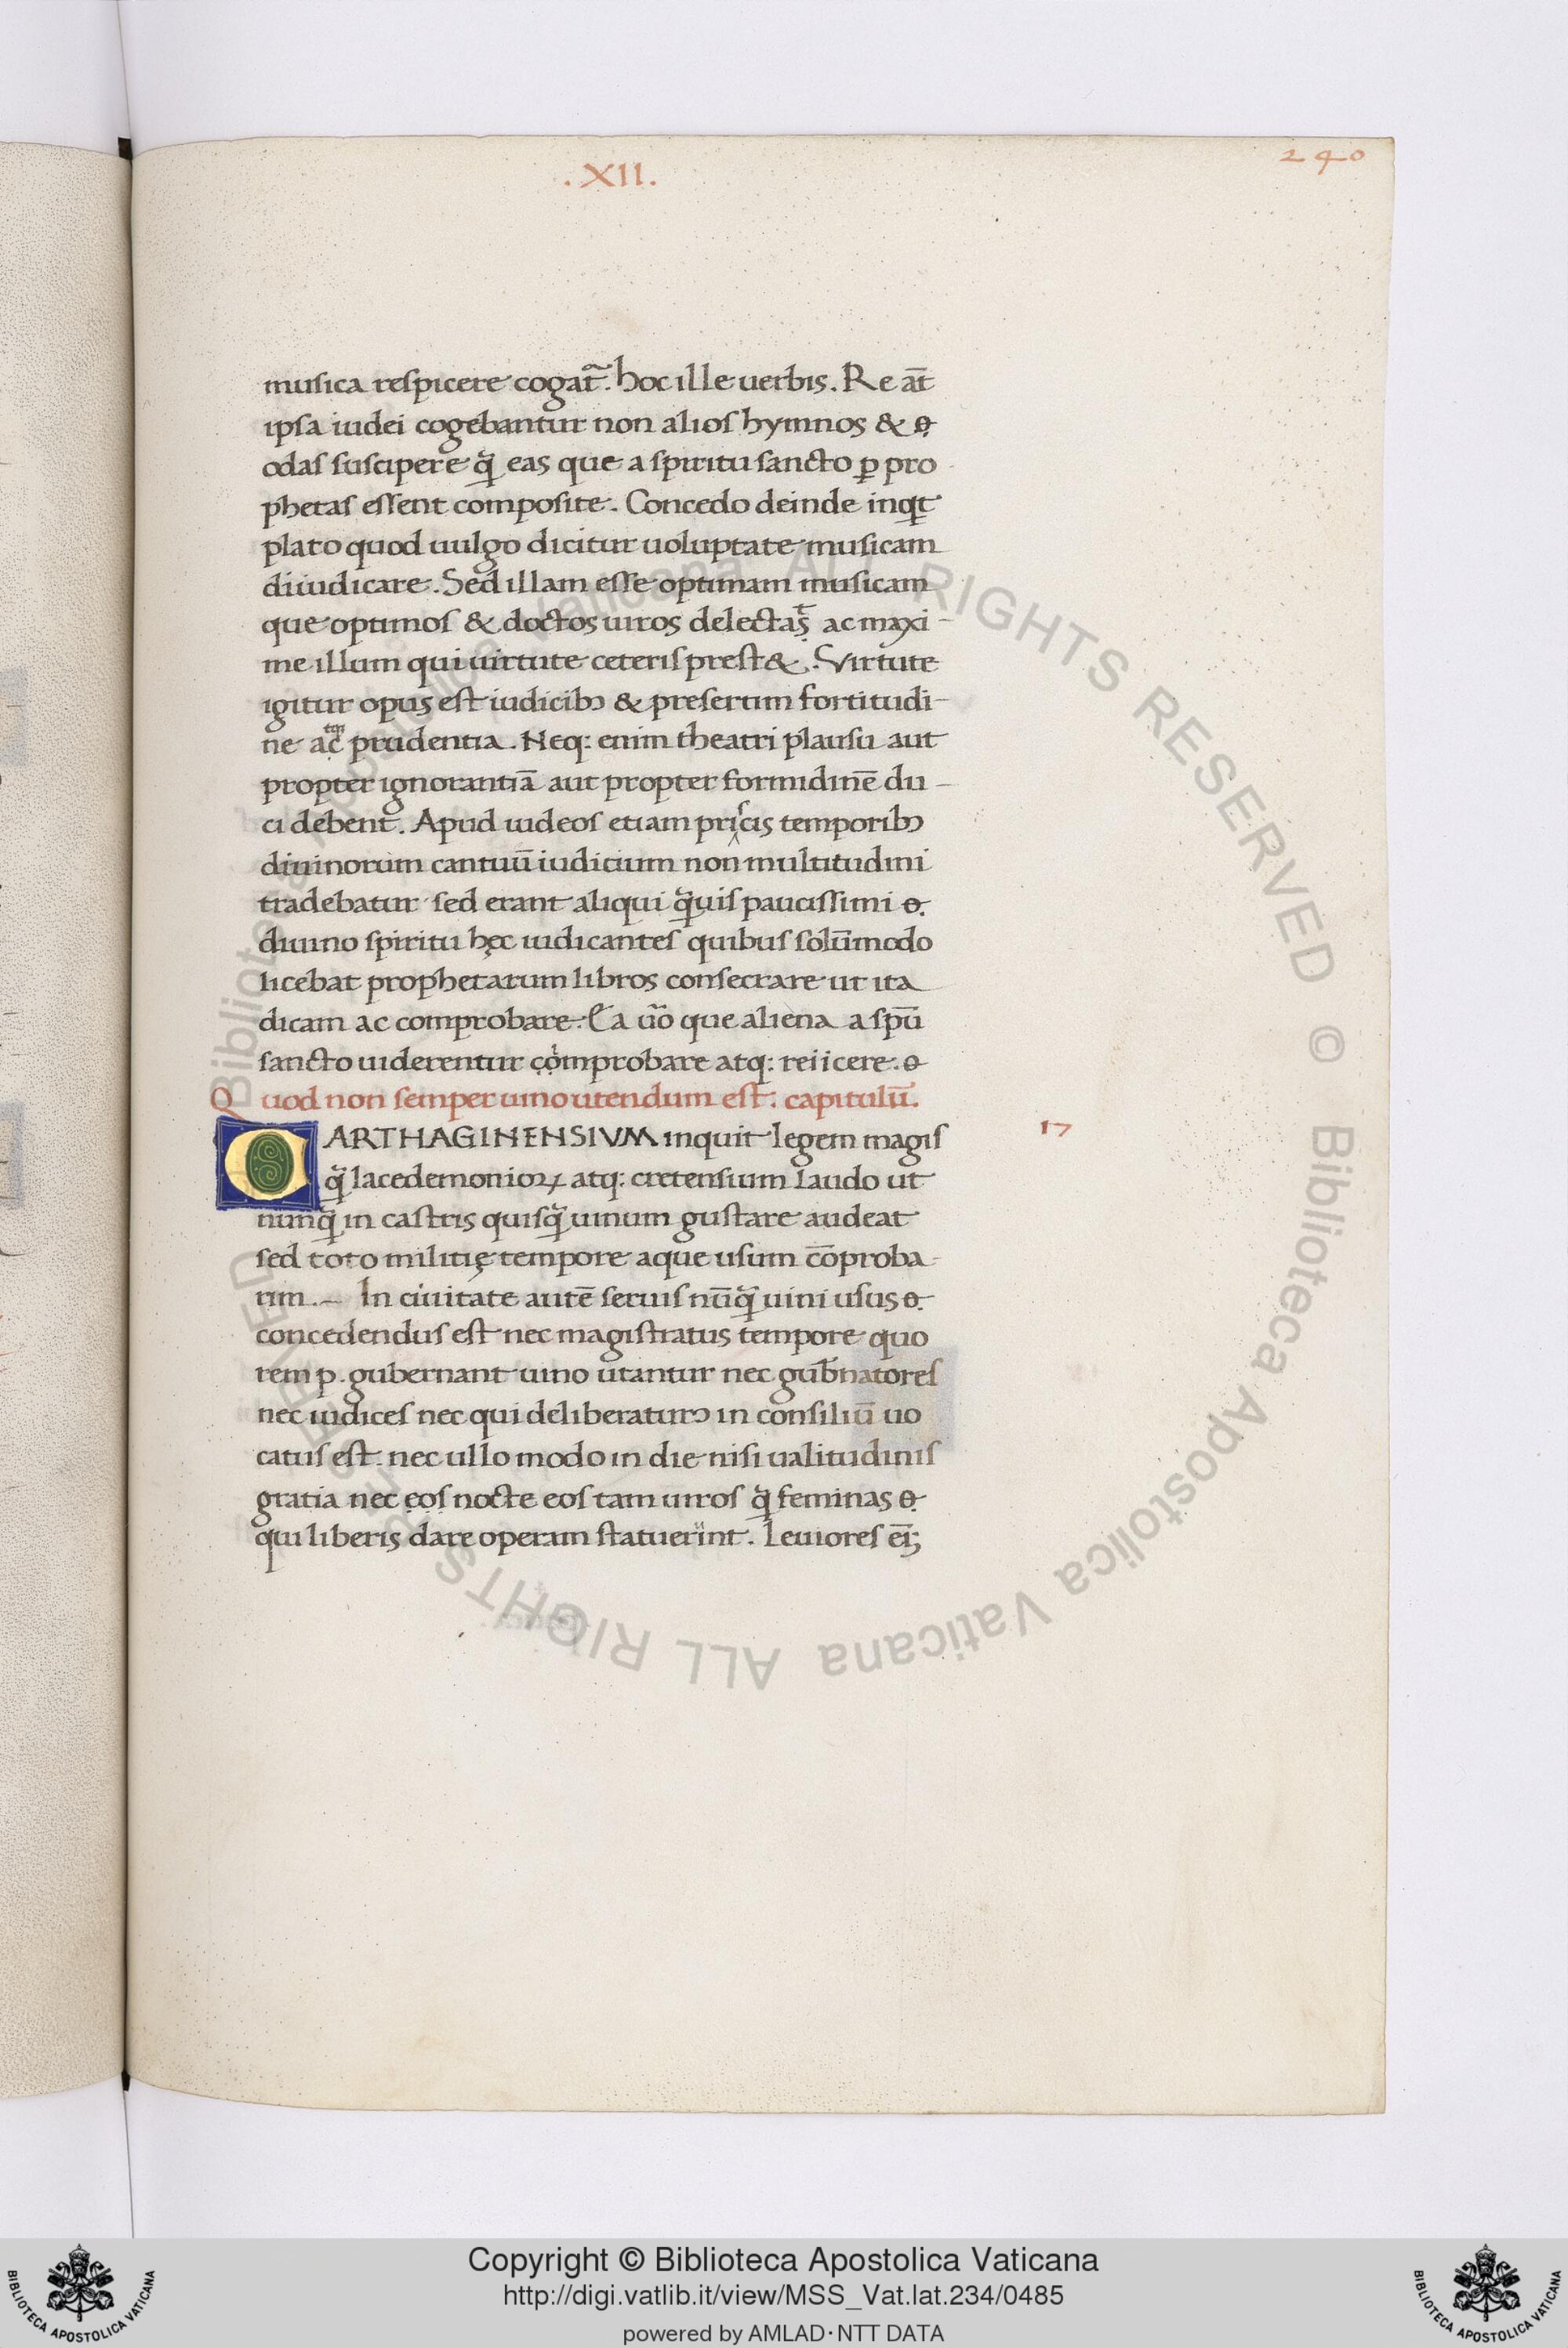 .XII.
240
musica respicere cogat᷑. hoc ille uerbis. Re at̄
ipsa iudei cogebantur non alios hymnos &
odas suscipere q̈ eas que a spiritu sancto ꝑ pro
phetas essent composite. Concedo deinde inqt
plato quod uulgo dicitur uoluptate musicam
diiudicare. Sed illam esse optimam musicam
que optimos & doctos uiros delectat ac maxi-
me illum qui uirtute ceteris prest&. Virtute
igitur opus est iudicibꝰ & presertim fortitudi-
ne ac prudentia. Neq: enim theatri plausu aut
propter ignorantiā aut propter formidinē du-
ci debent. Apud iudeos etiam priscis temporibꝰ
diuinorum cantuū iudicium non multitudini
tradebatur sed erant aliqui q̈uis paucissimi
diuino spiritu hęc iudicantes quibus solūmodo
licebat prophetarum libros consecrare ut ita
dicam ac comprobare. Ea ūo que aliena a spū
sancto uiderentur comprobare atq: reiicere.
Quod non semper uino utendum est. capitulū.
CARTHAGINENSIVM inquit legem magis
17
q̈ lacedemonioꝝ atq: cretensium laudo ut
nunq̈ in castris quisq̈ uinum gustare audeat
sed toto militię tempore aque usum cōproba
rim.— In ciuitate autē seruis nūq̈ uini usus
concedendus est nec magistratus tempore quo
rem p. gubernant uino utantur nec gub̄natores
nec iudices nec qui deliberaturꝰ in consiliū uo
catus est. nec ullo modo in die nisi ualitudinis
gratia nec eos nocte eos tam uiros q̈ feminas
qui liberis dare operam statuerint. Leuiores
Copyright © Biblioteca Apostolica Vaticana
http://digi.vatlib.it/view/MSS_Vat.lat.234/0485
powered by AMLAD·NTT DATA
BIBLIOTECA APOSTOLICA VATICANA
BIBLIOTECA APOSTOLICA VATICANA
Biblioteca Apostolica Vaticana ALL RIGHTS RESERVED © Biblioteca Apostolica Vaticana ALL RIGHTS RESERVED